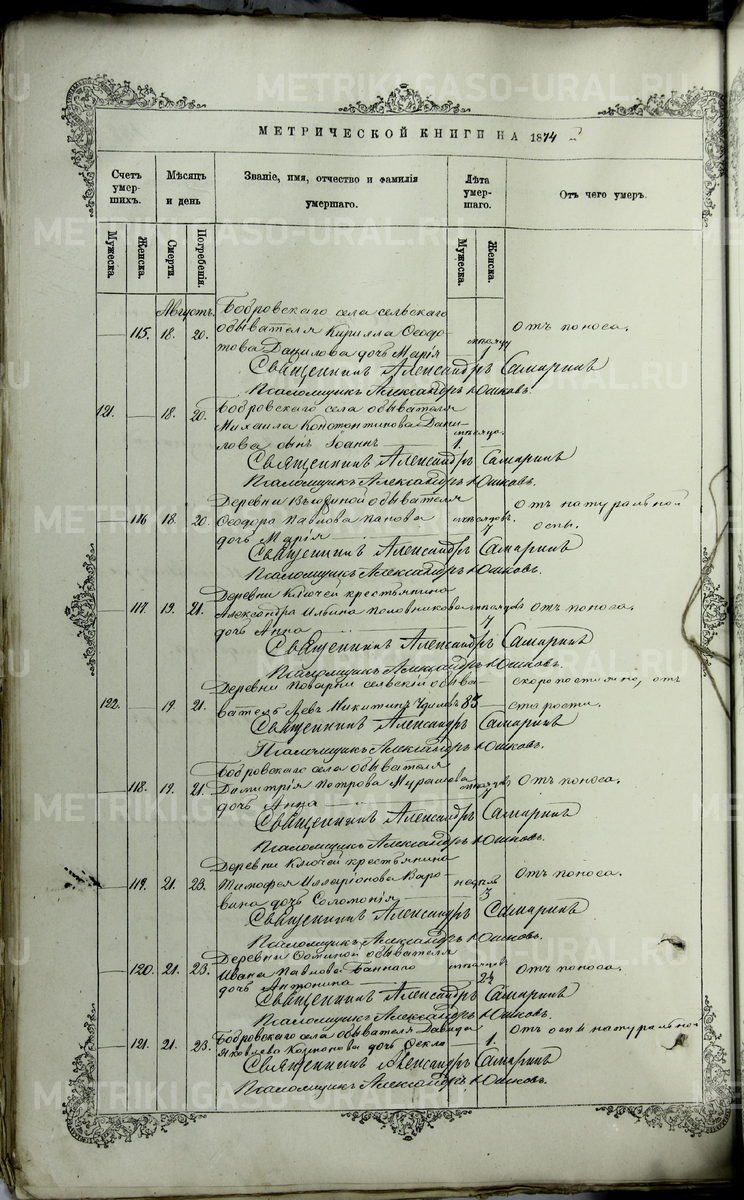 МЕТРИЧЕСКОЙ КНИГИ НА 1874
Счетъ умер- шихъ.
Мѣсяцъ и день
Званіе, имя, отчество и фамилія умершаго.
Лѣта умер- шаго.
Отъ чего умеръ.
Мужеска. Женска. Смерти. Погребенія. Мужеска. Женска.
Августъ. Бобровскаго села сельскаго
115. 18. 20. обывателя Кирилла Ѳеодо- Отъ поноса.
това Данилова дочь Марія 1
Священникъ Александръ Самаринъ
Псаломщикъ Александръ Юшковъ.
121. 18. 20. Бобровскаго села обывателя
Михаила Константинова Дани-
лова сынъ Іоаннъ 1.
Священникъ Александръ Самаринъ
Псаломщикъ Александръ Юшковъ.
Деревни обывателя Отъ натуральной
116 18. 20. Ѳеодора Павлова Панова оспы.
дочь Марія
Священникъ Александръ Самаринъ
Псаломщикъ Александръ Юшковъ.
Деревни Ключей крестьянина
117. 19. 21. Александра Ильина Половникова Отъ поноса.
дочь Анна
Священникъ Александръ Самаринъ
Псаломщикъ Александръ Юшковъ.
Деревни Поварни сельскій обыва- скоропостижно, отъ
122. 19 21. ватель Левъ Никитинъ 85 старости.
Священникъ Александръ Самаринъ
Псаломщикъ Александръ Юшковъ.
Бобровскаго села обывателя
118. 19. 21. Димитрія Петрова Мурашова Отъ поноса.
дочь Анна
Священникъ Александръ Самаринъ
Псаломщикъ Александръ Юшковъ.
Деревни Ключей крестьянина
119. 21. 23. Тимофея ИлларіоноваВаро- недѣль Отъ поноса.
вина дочь Соломонія 3
Священникъ Александръ Самаринъ
Псаломщикъ Александръ Юшковъ.
Деревни Ѳоминой обывателя
120. 21. 23. Ивана Павлова Баннаго Отъ поноса.
дочь Антонина
Священникъ Александръ Самаринъ
Псаломщикъ Александръ Юшковъ.
Бобровскаго села обывателя Давида Отъ оспы натуральной
121. 21. 23. Яковлева дочь Ѳекла 1.
Священникъ Александръ Самаринъ
Псаломщикъ Александръ Юшковъ.
METRIKI.GASO-URAL.RU